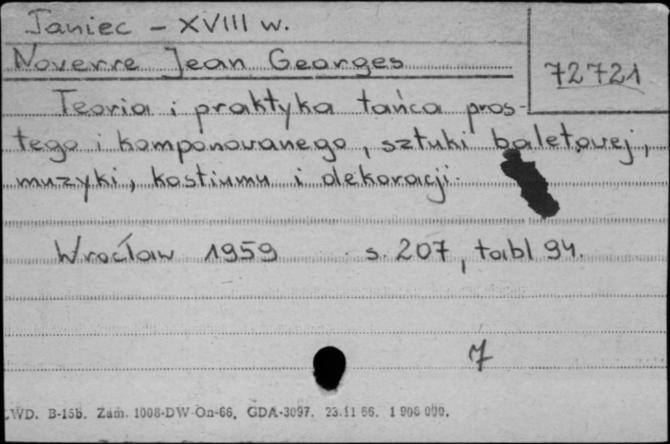 Taniec - XVIII w.
Noverre Jean Georges
72721
Teoria i praktyka tańca pros-
tego i komponowanego, sztuki baletowej,
muzyki, kostiumu i dekoracji.
Wrocław 1959 s. 207, tabl 94.
7
WD. B-15b. Zam. 1008-DW-On-66. GDA-3097. 23.11 66. 1 900 000.